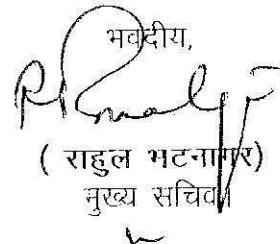 भवदीय,
( राहुल भटनागर)
मुख्य सचिव।